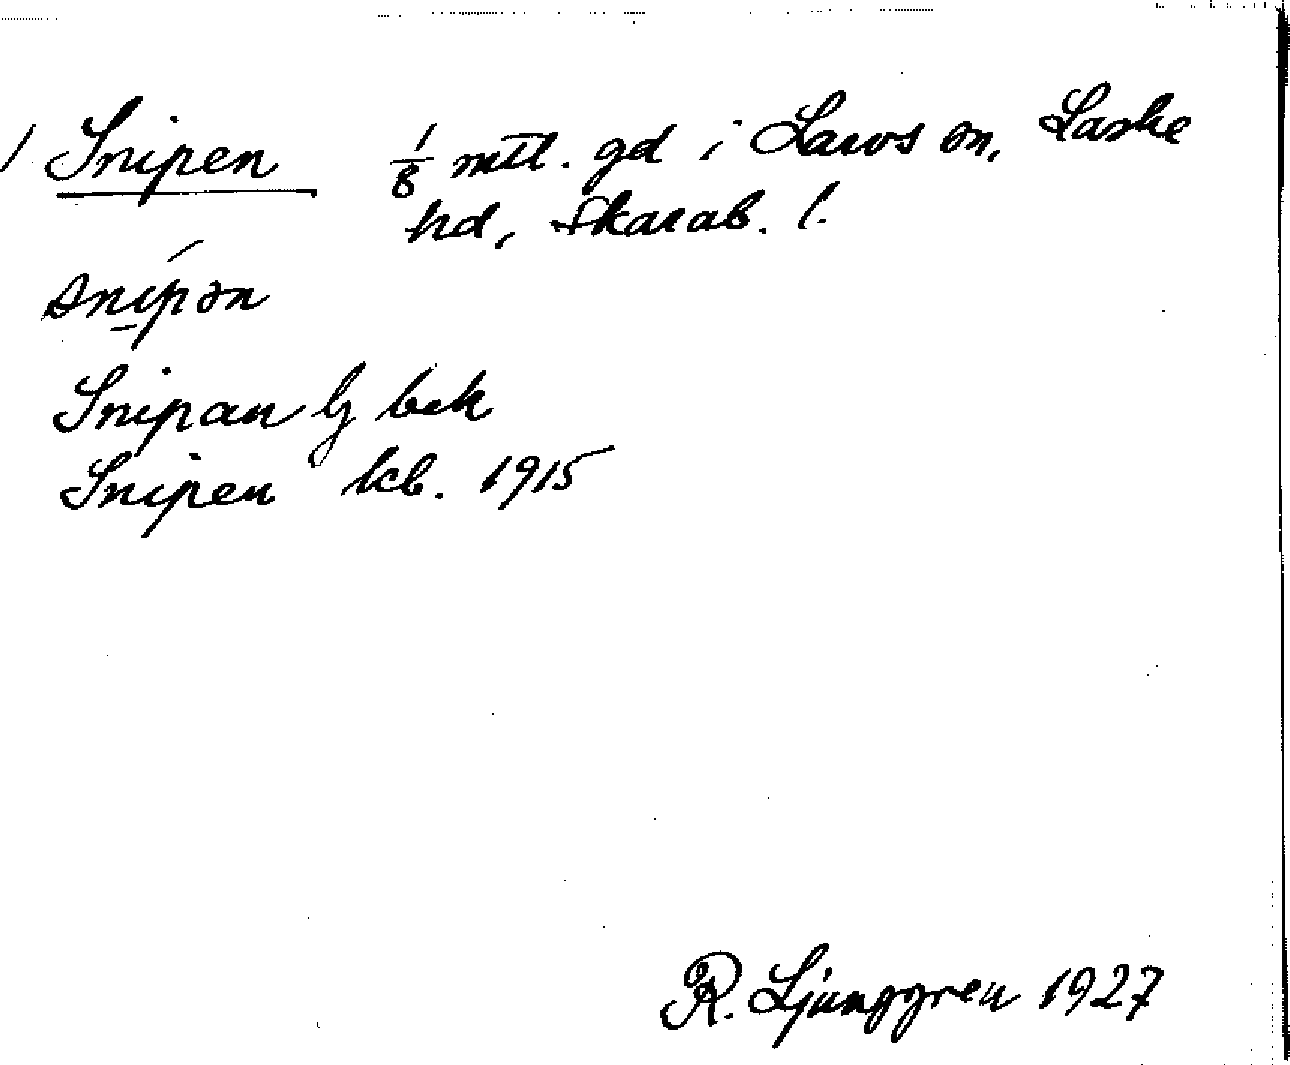 1 Snipen 1/8 mtl. gd i Larvs sn, Laske
hd, Skarab. l.
snipən
Snipan Lj bek
Snipen kb. 1915
R. Ljunggren 1927